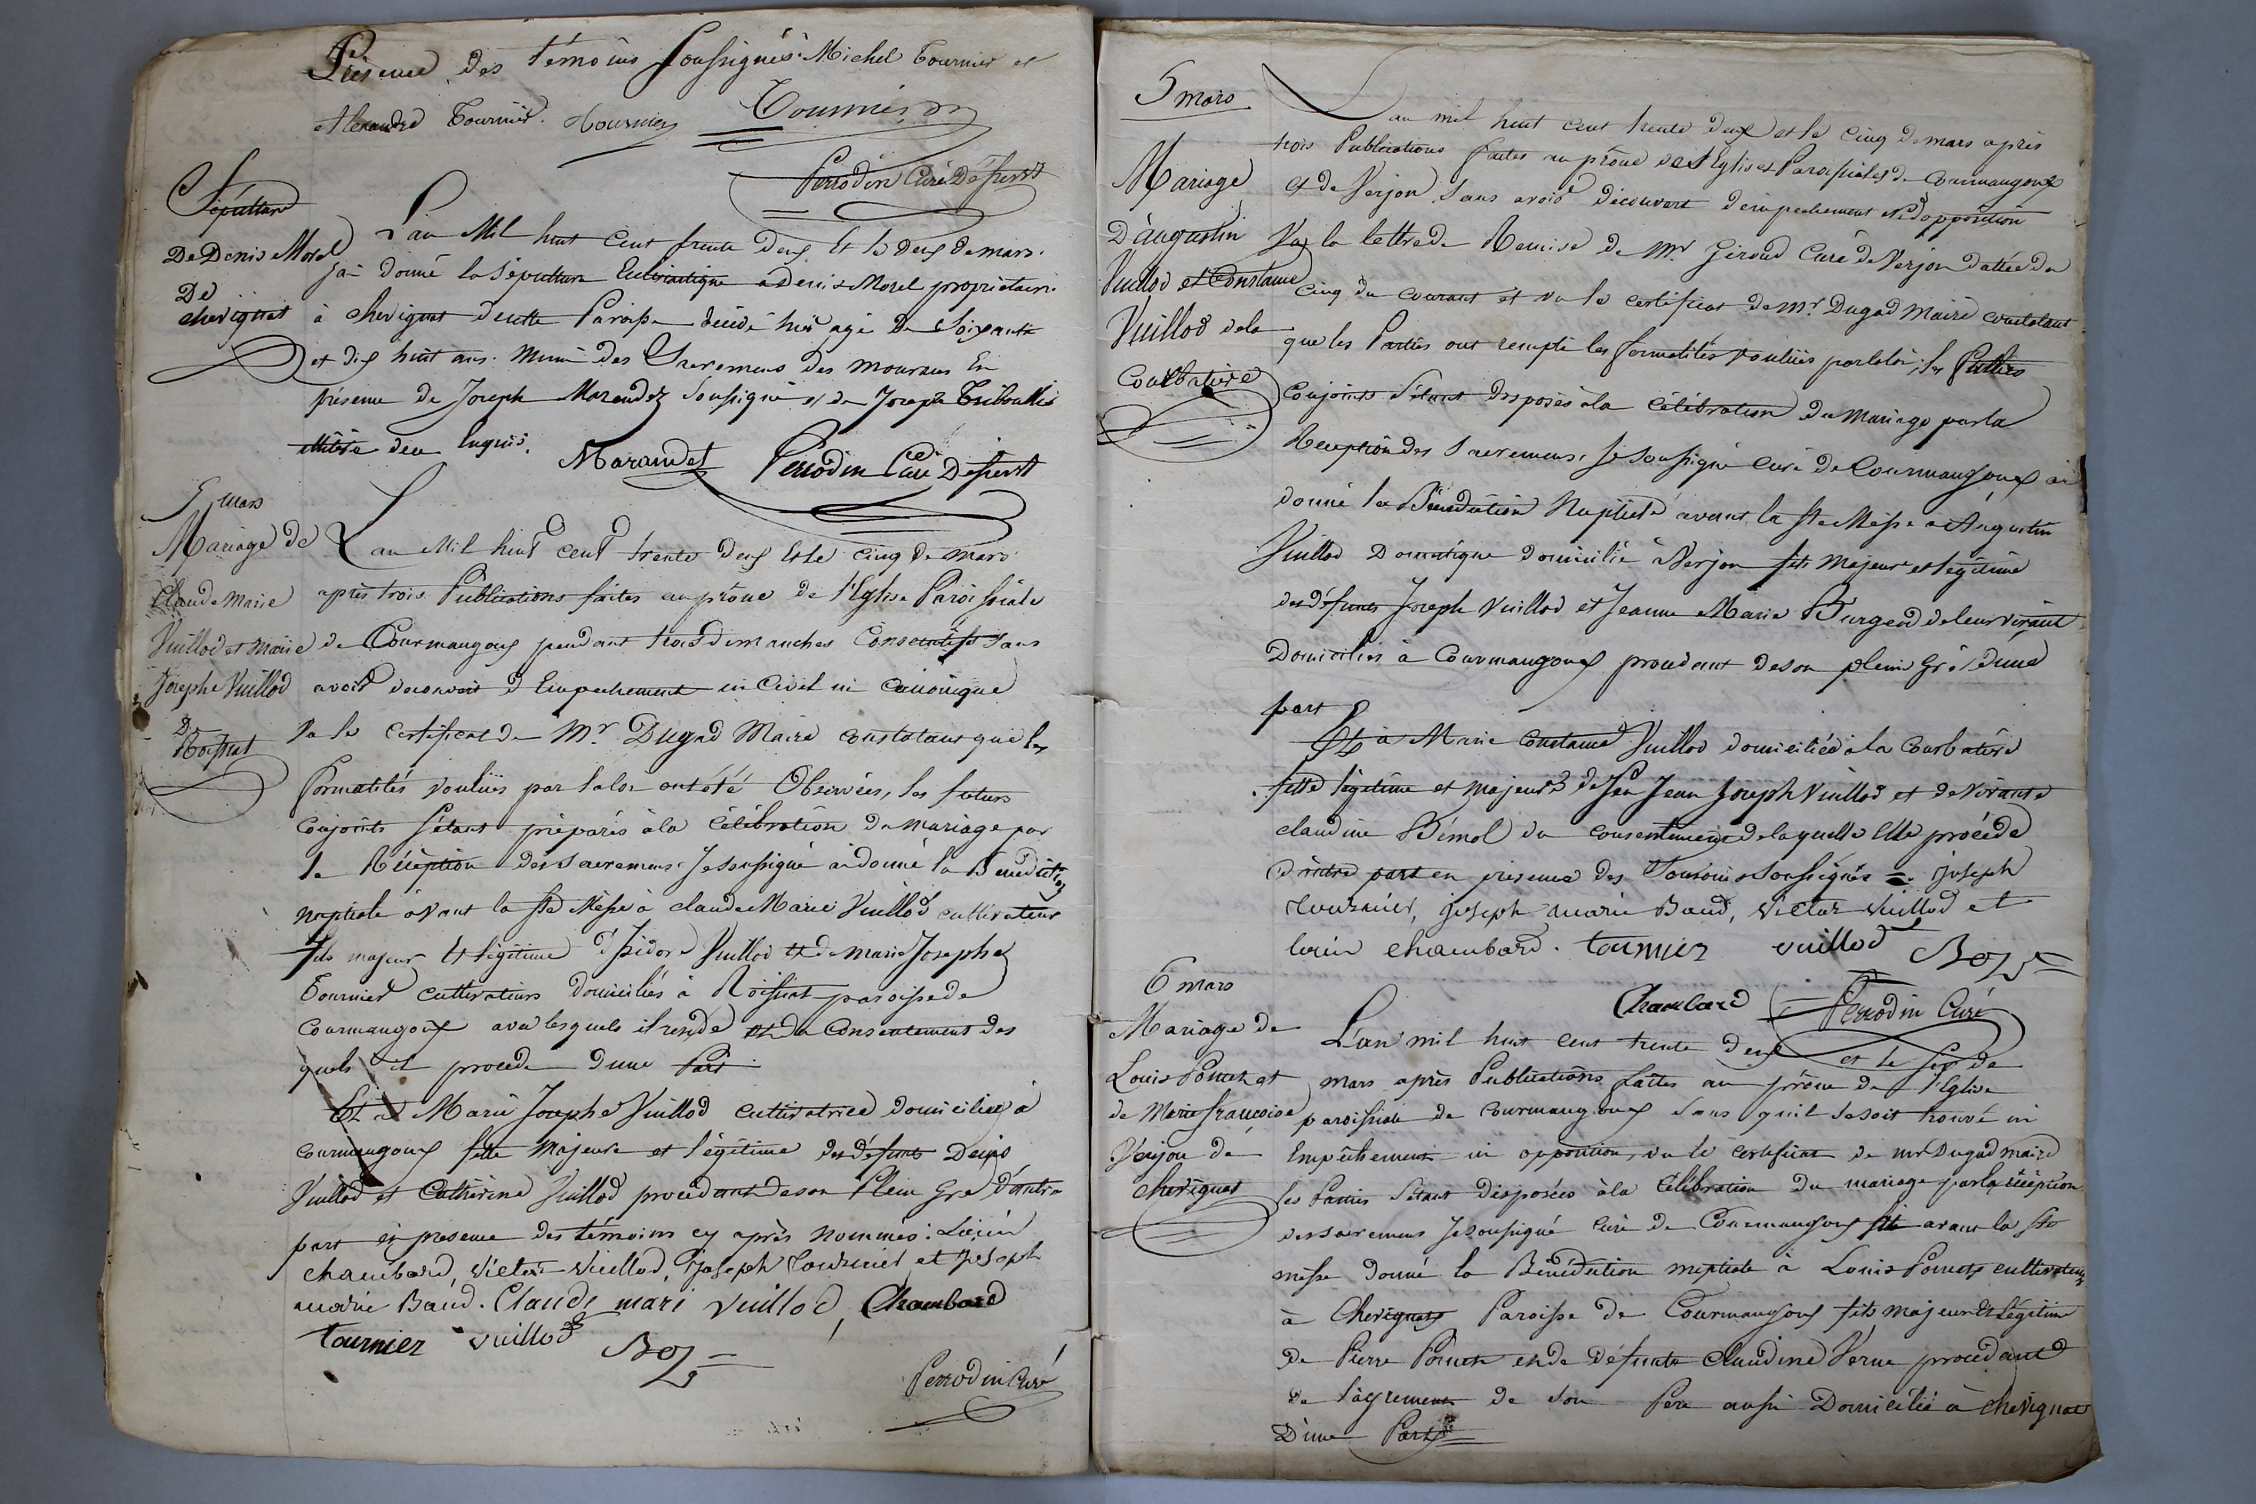 Présence des témoins Soussignés. Michel Tournier et
Alexandre Tournier. Tournier Tournier
Perrodin Curé Desservt
Sépulture
De Denis Morel
De
chevignat
L'an Mil huit cent trente deux Et le deux de mars.
J'ai donné la Sépulture Eclésiastique a Denis Morel propriétaire
à chevignat de cette Paroisse décédé hier agé de Soixante
et dix huit ans. muni des Sacremens des mourans En
présence de Joseph Marandet Soussigné et de Joseph Tribollet
illitéré de ce Enquis.
Marandet Perrodin Curé Desservt
5 mars
Mariage de
Claude Marie
Vuillod et marie
Josephe Vuillod
De
Roissiat
L'an Mil huit cent trente deux Et le cinq de mars
après trois Publications faites au prône de l'Eglise Paroissiale
de Courmangoux pendant trois dimanches Consecutifs sans
avoir découvert d'Empechement ni Civil ni Canonique
Vu le Certificat de Mr. Dugad Maire constatant que les
formalités voulües par la loi ont été Observées, les futurs
conjoints s'étant préparés à la Célébration du mariage par
la Réception des sacremens, Je soussigné ai donné la Bénédiction
nuptiale avant la Ste Messe à claude Marie Vuillod cultivateur
fils majeur et légitime d'Isidore Vuillod et de marie Josephe
Tournier cultivateurs domiciliés à Roissiat paroisse de
Courmangoux avec lesquels il reside et du Consentement des
quels il procede d'une Part
Et à Marie Josephe Vuillod cultivatrice domiciliée à
courmangoux fille Majeure et légitime des défunts Denis
Vuillod et Catherine Vuillod procédant de son Plein Gré D'autre
part en presence des témoins cy après Nommés: Lucien
chambard, Victor Vuillod, Joseph Tournier et Joseph
marie Baud. Claude mari vuillod, Chambard
tournier vuillod
Perrodin Curé
5 mars
Mariage
D'augustin
Vuillod et Constance
Vuillod de la
Courbatière
L'an mil huit cent trente deux et le cinq de mars après
trois Publications faites au prône des Eglises Paroissiales de Courmangoux
et de Verjon, sans avoir découvert d'empechement Ni d'opposition
Vu la lettre de Remise de Mr. Giroud Curé de Verjon dattée du
cinq du courant et vu le certificat de Mr. Dugad Maire constatant
que les Parties ont rempli les formalités voulües par la loi, les Futurs
Conjoints s'étant disposés à la Célébration du Mariage par la
Reception des Sacremens, Je soussigné curé de Courmangoux ai
donné la Bénédiction Nuptiale avant la Ste Messe à Augustin
Vuillod Domestique domicilié à Verjon fils Majeur et légitime
des défunts Joseph Vuillod et Jeanne Marie Burgeod de leur vivant
Domiciliés à Courmangoux procédant de son plein Gré d'une
part
Et à Marie Constance Vuillod domiciliée à la Courbatière
fille légitime et majeure de feu Jean Joseph Vuillod et de vivante
claudine Bémol du consentement de laquelle elle procéde
d'autre part en présence des Temoins soussignés =. joseph
tournier, joseph marie Baud, victor vuillod et
lucien chambard. tournier vuillod
Chambard Perrodin Curé
6 mars
Mariage de
Louis Ponchet
de Marie françoise
Verjou de
chevignat
L'an mil huit cent trente deux et le six de
mars après Publications faites au prône de l'Eglise
paroissiale de Courmangoux sans qu'il se soit trouvé ni
Empêchement ni opposition, vu le certificat de mr Dugad maire
les Parties s'étant disposées à la Célébration du mariage par la réception
des sacremens Je soussigné curé de Courmangoux ai avant la Ste
messe donné la Bénédiction nuptiale à Louis Ponchet cultivateur
à Chevignat Paroisse de Courmangoux fils majeur et légitime
De Pierre Ponchet et de Défunte claudine Verne procédant
de l'agrement de son Père aussi Domicilié à chevignat
D'une Part